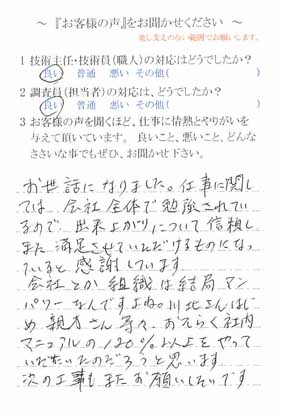 ～『お客様の声』をお聞かせください～
差し支えのない範囲でお願いします。
1 技術主任・技術員(職人)の対応はどうでしたか?
良い 普通 悪い その他( )
2 調査員(担当者)の対応は、どうでしたか?
良い 普通 悪い その他( )
3 お客様の声を聞くほど、仕事に情熱とやりがいを
与えて頂いています。良いこと、悪いこと、どんな
ささいな事でもぜひ、お聞かせ下さい。
お世話になりました。仕事に関し
ては、会社全体で勉強されてい
るので、出来上がりについて信頼し
また満足させていただけるものになっ
ていると感謝しています
会社とか組織は結局マン
パワーなんですよね。川北さんはじ
め、親方さん等々、おそらく社内
マニュアルの120%以上をやって
いただいたのだろうと思います
次の工事もまたお願いしたいです